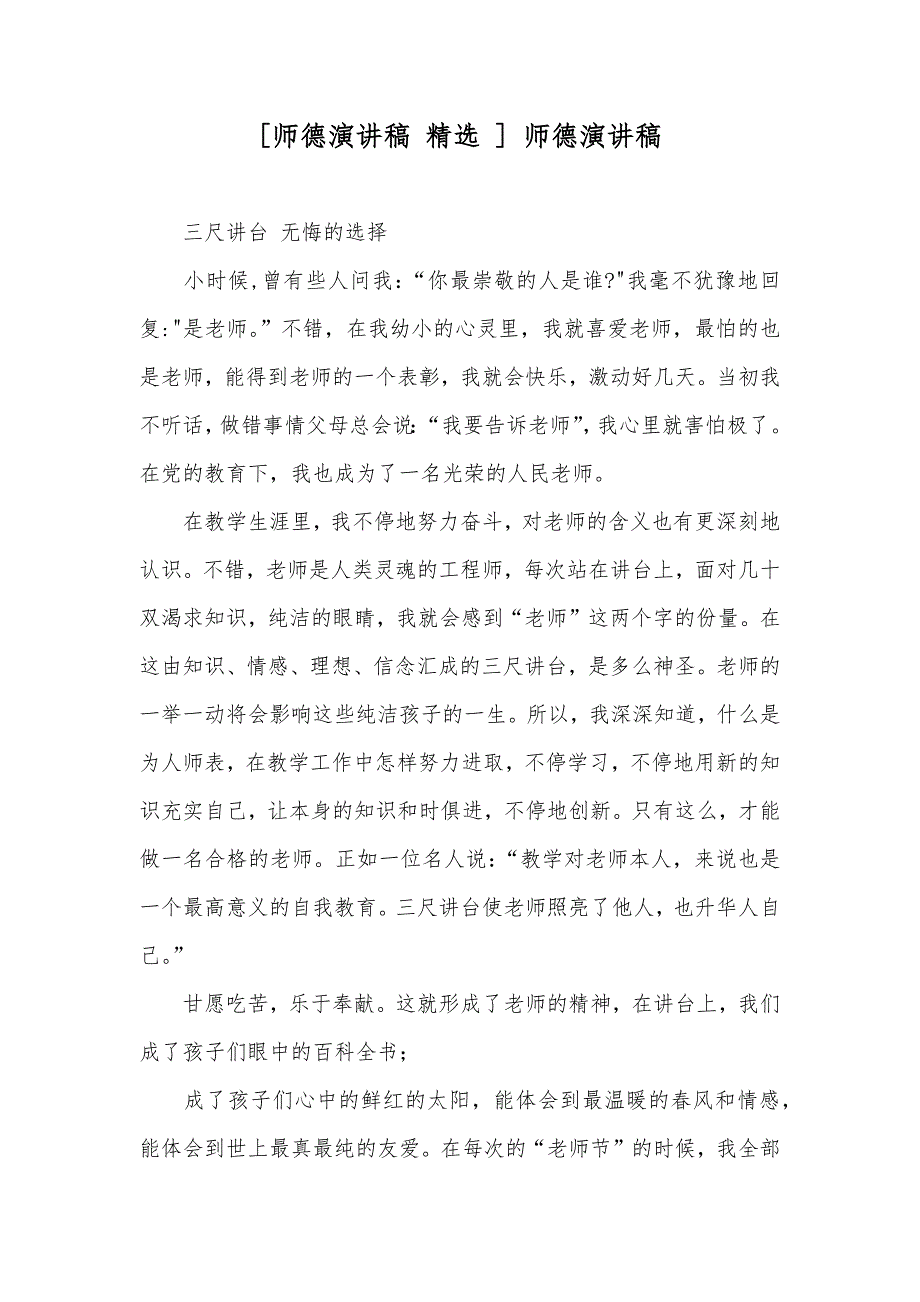 [师德演讲稿 精选 ] 师德演讲稿
三尺讲台 无悔的选择
小时候,曾有些人问我：“你最崇敬的人是谁?"我毫不犹豫地回
复:"是老师。”不错，在我幼小的心灵里，我就喜爱老师，最怕的也
是老师，能得到老师的一个表彰，我就会快乐，激动好几天。当初我
不听话，做错事情父母总会说：“我要告诉老师”，我心里就害怕极了。
在党的教育下，我也成为了一名光荣的人民老师。
在教学生涯里，我不停地努力奋斗，对老师的含义也有更深刻地
认识。不错，老师是人类灵魂的工程师，每次站在讲台上，面对几十
双渴求知识，纯洁的眼睛，我就会感到“老师”这两个字的份量。在
这由知识、情感、理想、信念汇成的三尺讲台，是多么神圣。老师的
一举一动将会影响这些纯洁孩子的一生。所以，我深深知道，什么是
为人师表，在教学工作中怎样努力进取，不停学习，不停地用新的知
识充实自己，让本身的知识和时俱进，不停地创新。只有这么，才能
做一名合格的老师。正如一位名人说：“教学对老师本人，来说也是
一个最高意义的自我教育。三尺讲台使老师照亮了他人，也升华人自
己。”
甘愿吃苦，乐于奉献。这就形成了老师的精神，在讲台上，我们
成了孩子们眼中的百科全书；
成了孩子们心中的鲜红的太阳，能体会到最温暖的春风和情感，
能体会到世上最真最纯的友爱。在每次的“老师节”的时候，我全部